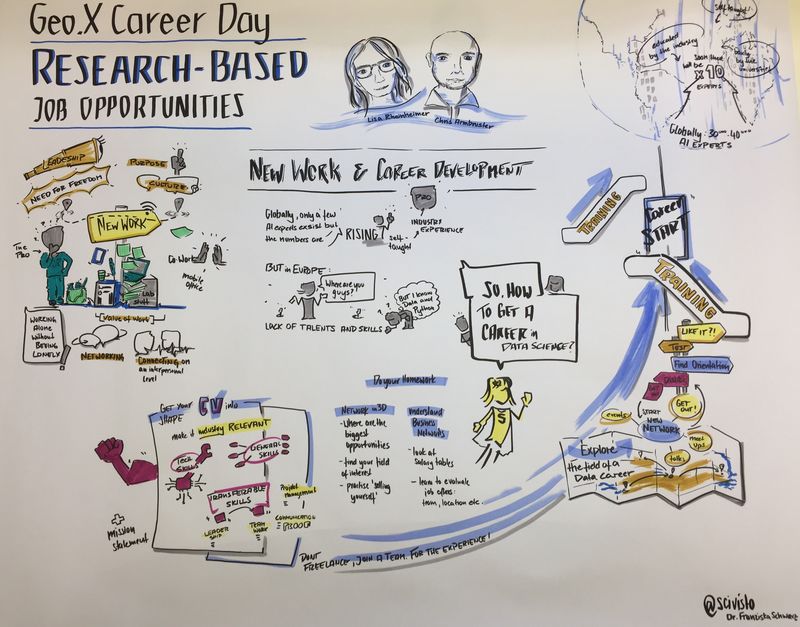 Geo.X Career Day
RESEARCH-BASED
JOB OPPORTUNITIES
Lisa Rheinheimer
Chris Armbruster
self-taught!
educated
by the industry
soon there
will be
x10
EXPERTS
Globally: 30 40
AI EXPERTS
LEADESHIP
NEED FOR FREEDOM
PURPOSE
CULTURE
NEW WORK
The PRO
Co Work
mobile
office
Lab
stuff
Value of Work
WORKING
Alone
without
BEING
LONELY
NETWORKING
Connecting on
an interpersonal
level
NEW WORK & CAREER DEVELOPMENT
Globally, only a few
AI experts exsist but
the numbers are
RISING
self-
taught
PRO
INDUSTRY
EXPERIENCE
BUT in EUROPE:
Where are you
guys?
But I know
Data and
Python
LACK OF TALENTS AND SKILLS
SO, HOW
TO GET A
CAREER in
DATA SCIENCE?
TRAINING
Career
START
TRAINING
LIKE IT?!
Test
Find Orientation
GET OUT!
events
START
NEW
NETWORK
meet
ups
talks
Explore
the field of a
Data career
GET YOUR CV into
SHAPE
make it industry RELEVANT
TECH
SKILLS
GENERAL
SKILLS
TRANSFERABLE
SKILLS
Project
management
LEADER
SHIP
TEAM
WORK
COMMUNICATION
mission
statement
Do your Homework
NETWORK in 3D
- where are the
biggest
opportunities
- find your field
of interest
- practise 'selling
yourself'
Understand
Business
Networks
- look at
salary tables
- learn to evaluate
job offers:
team, location etc.
DONT
FREELANCE, JOIN A TEAM. FOR THE EXPERIENCE!
@scivisto
Dr. Franziska Schwarz